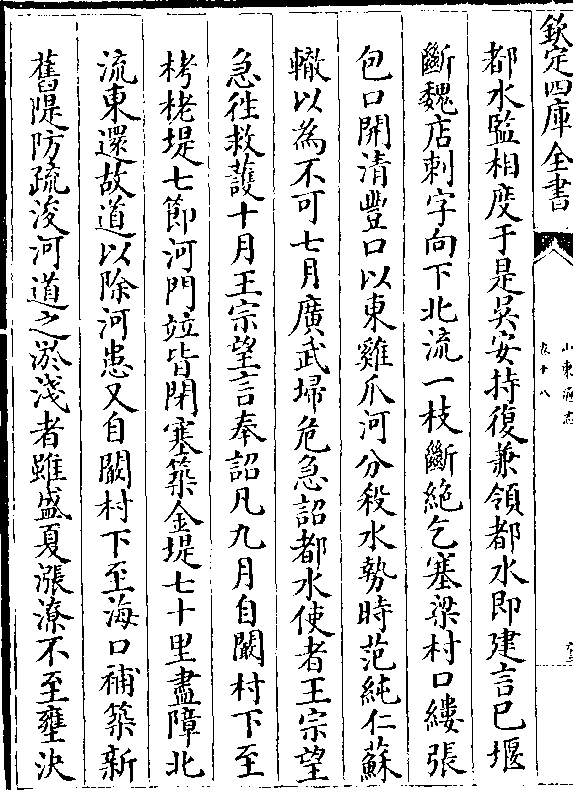 欽定四庫全書
山東通志
卷十八
都水監相度于是吳安持復兼領都水即建言已堰
斷魏店刺字向下北流一枝斷絶乞塞梁村口縷張
包口開清豐口以東雞爪河分殺水勢時范純仁蘇
轍以為不可七月廣武埽危急詔都水使者王宗望
急徃救䕶十月王宗望言奉詔凡九月自闞村下至
栲栳堤七節河門竝皆閉塞築金堤七十里盡障北
流東還故道以除河患又自闞村下至海口補築新
舊隄防疏浚河道之淤淺者雖盛夏漲潦不至壅決